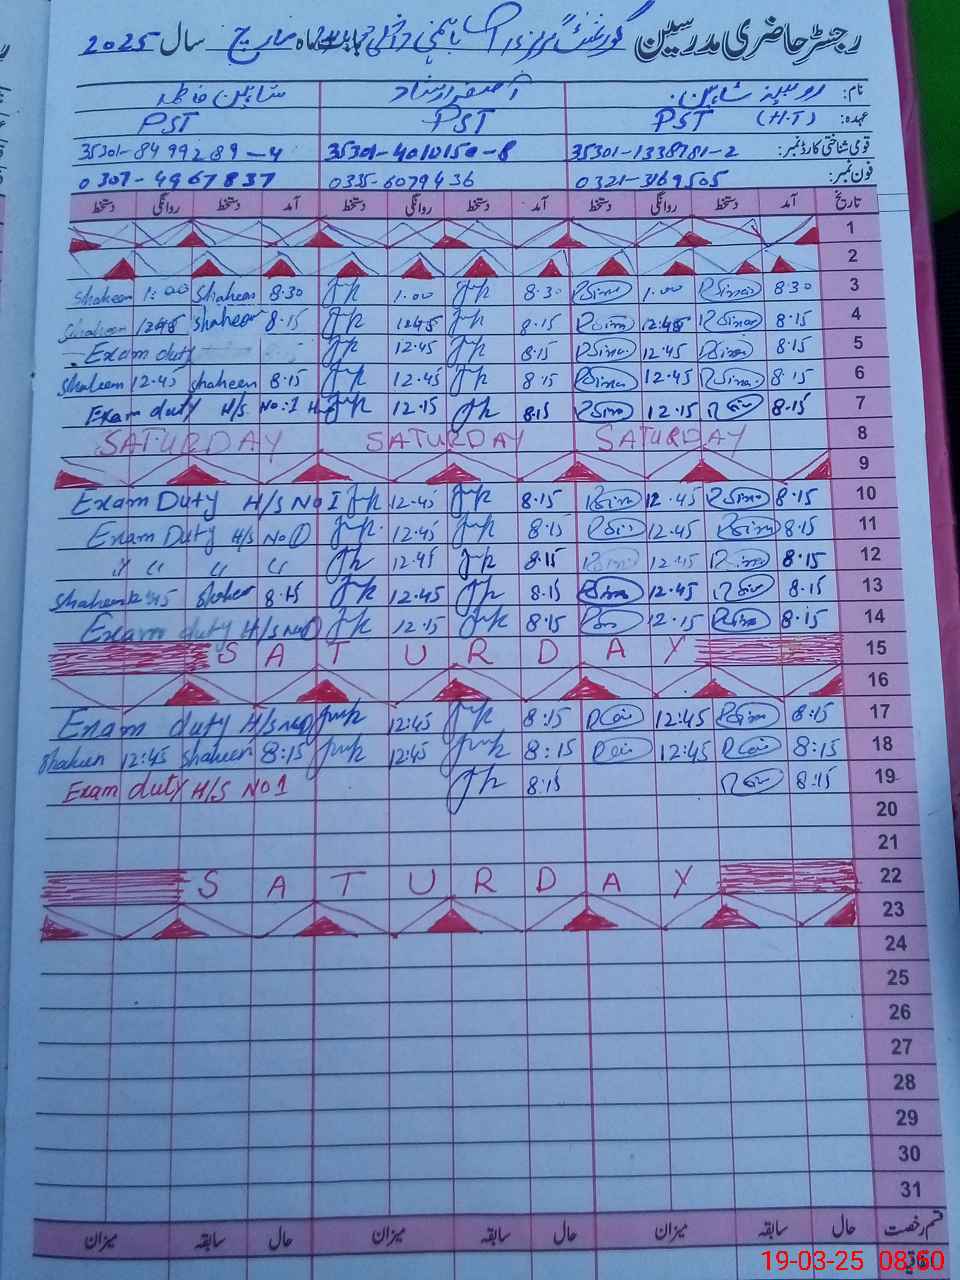 رجسٹر حاضری مدرسین گورنمنٹ ماہ مارچ سال 2025
نام: روبینہ شاہین شاہین فاطمہ
عہدہ: PST (H.T) PST PST
قومی شناختی کارڈ نمبر: 35301-1338781-2 35301-4010150-8 35301-8499289-4
فون نمبر: 0321-3169505 0335-6079436 0307-4967837
تاریخ آمد دستخط روانگی دستخط آمد دستخط روانگی دستخط آمد دستخط روانگی دستخط
1
2
Shaheen 1:00 Shaheen 8-30 1.00 8.30 1.00 8.30 3
Shaheen 12:45 Shaheen 8-15 12:45 8.15 12:45 8.15 4
Exam duty 12.45 8.15 12.45 8.15 5
Shaheen 12.45 Shaheen 8.15 12.45 8.15 12.45 8.15 6
Exam duty H/S No:1 12.15 8.15 12.15 8.15 7
SATURDAY SATURDAY SATURDAY 8
9
Exam Duty H/S No 1 12.45 8.15 12.45 8.15 10
Exam Duty H/S No 1 12.45 8.15 12.45 8.15 11
" " " " 12.45 8.15 12.45 8.15 12
Shaheen 12:45 Shaheen 8.15 12.45 8.15 12.45 8.15 13
Exam duty H/S No 1 12.15 8.15 12.15 8.15 14
SATURDAY 15
16
Exam duty H/S No 1 12:45 8:15 12:45 8:15 17
Shaheen 12:45 Shaheen 8:15 12:45 8:15 12:45 8:15 18
Exam duty H/S No 1 8:15 8:15 19
20
21
SATURDAY 22
23
24
25
26
27
28
29
30
31
قسم رخصت حال سابقہ میزان حال سابقہ میزان حال سابقہ میزان
19-03-25 08:50